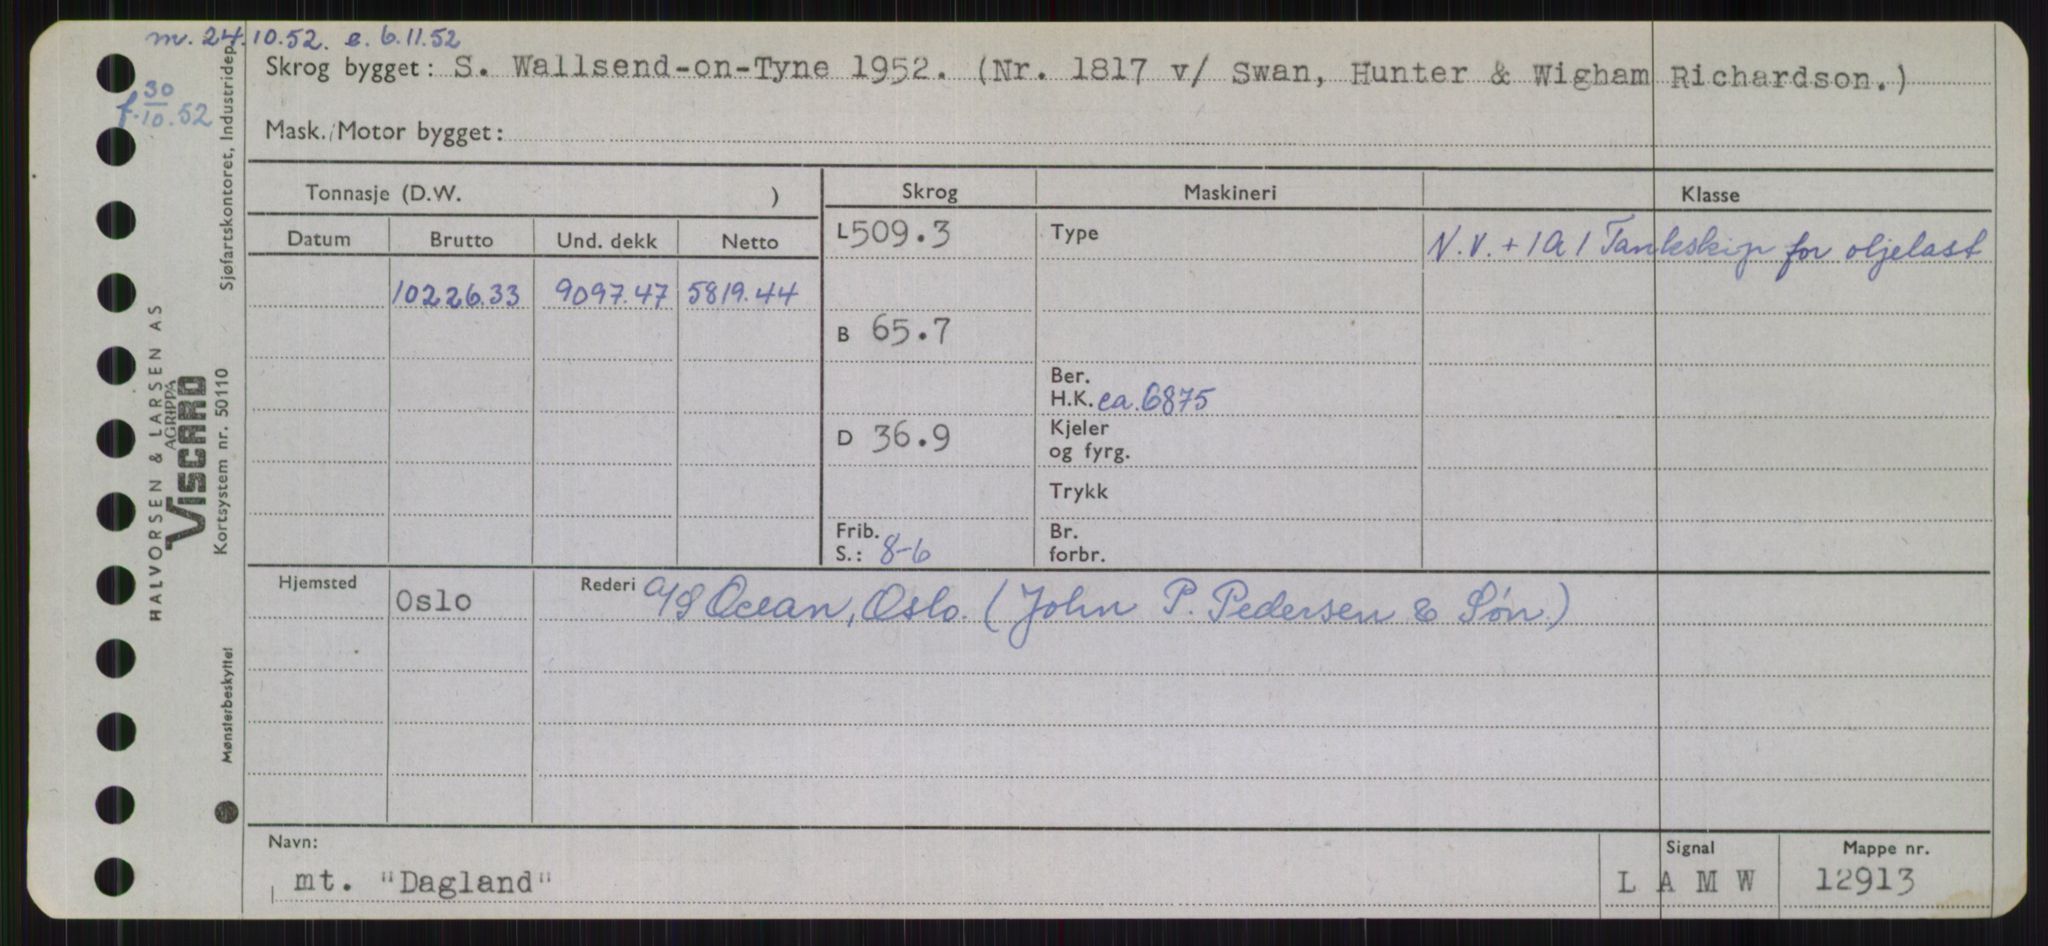 m. 24.10.52. e. 6.11.52
f. 30/10.52
Skrog bygget: S. Wallsend-on-Tyne 1952. (Nr. 1817 v/ Swan, Hunter & Wigham Richardson.)
Mask./Motor bygget:
Tonnasje (D.W. )
Datum Brutto Und. dekk Netto
10226.33 9097.47 5819.44
Skrog
L 509.3
B 65.7
D 36.9
Frib.
S.: 8-6
Maskineri
Type
Ber.
H.K. ca. 6875
Kjeler
og fyrg.
Trykk
Br.
forbr.
Klasse
N.V. + 1A1 Tankskip for oljelast
Hjemsted Oslo
Rederi A/S Ocean, Oslo. (John P. Pedersen & Søn.)
Navn:
mt. "Dagland"
Signal
L A M W
Mappe nr.
12913
HALVORSEN & LARSEN AS
AGRIPPA
VISCARD
Kortsystem nr. 50110
Sjøfartskontoret, Industridep.
Mønsterbeskyttet